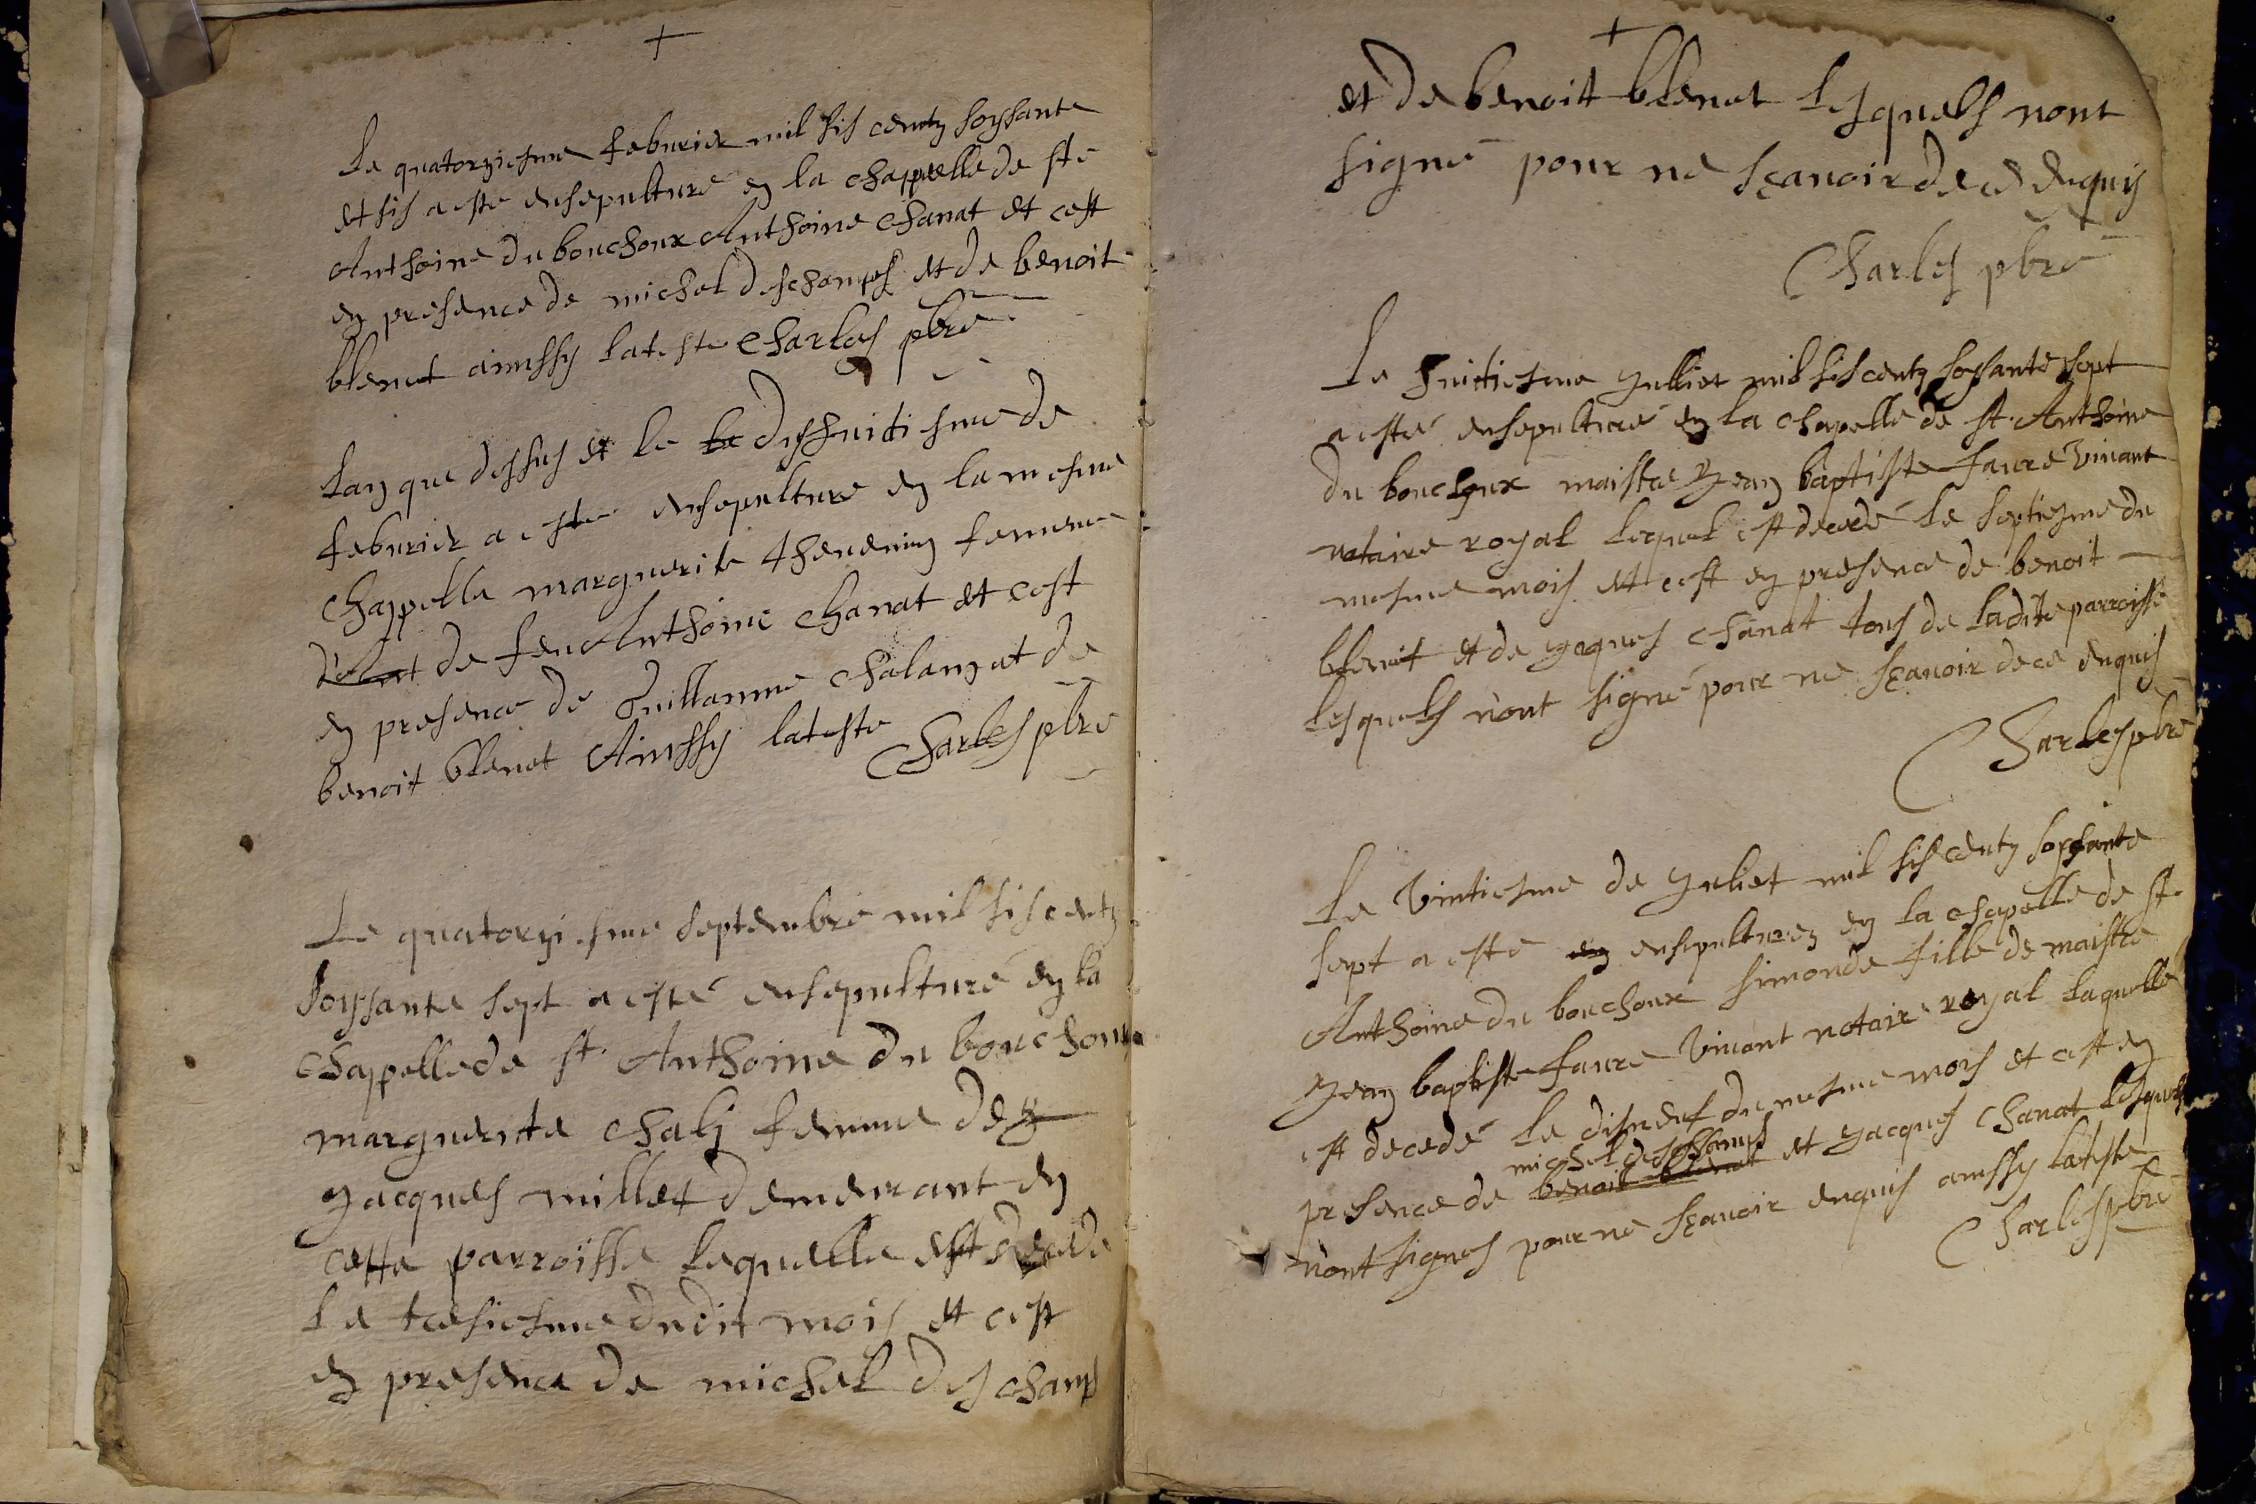 +
Le quatorziesme febvrier mil sis centz soyssante
et sis a este ensepulturé en la chappelle de st
Anthoine du bouchoux Anthoine Chanat et cest
en presence de michel deschamps et de benoit
blenat ainssy lateste Charles pbre
Lan que dessus et le le dishuitiesme de
febvrier a este ensepulture en la mesme
Chappelle marguerite thevenin femme
de feu Anthoine Chanat et cest
en presence de Guillaume Chalanzat de
benoit blenat Ainssy lateste Charles pbre
Le quatorziesme septembre mil sis centz
soyssante sept a esté ensepulturé en la
chappelle de st Anthoine du bouchoux
marguerite Chali femme de
yacques millet demeurant en
cette parroisse laquelle est decede
le tresiesme dudit mois et cest
en presence de michel deschamps
+
et de benoit blenat lesquels nont
signé pour ne sçavoir de ce enquis
Charles pbre
Le huitiesme yulliet mil sis centz soyssante sept
a esté ensepulturé en la chapelle de st Anthoine
du bouchoux maistre yean baptiste faure vivant
notaire royal lequel est decedé le septiesme du
mesme mois et cest en presence de benoit
blenat et de yaques Chanat tous de ladite parroisse
lesquels n'ont signé pour ne sçavoir de ce enquis
Charles pbre
Le vintiesme de yuliet mil sis centz soyssante
sept a esté en ensepulturez en la chapelle de st
Anthoine du bouchoux simonde fille de maistre
yean baptiste faure vivant notaire royal laquelle
est decedé le disneuf du mesme mois et cest en
michel deschamps
presence de benoit blenat et yacques Chanat lesquels
n'ont signes pour ne sçavoir enquis ainssy lateste
Charles pbre